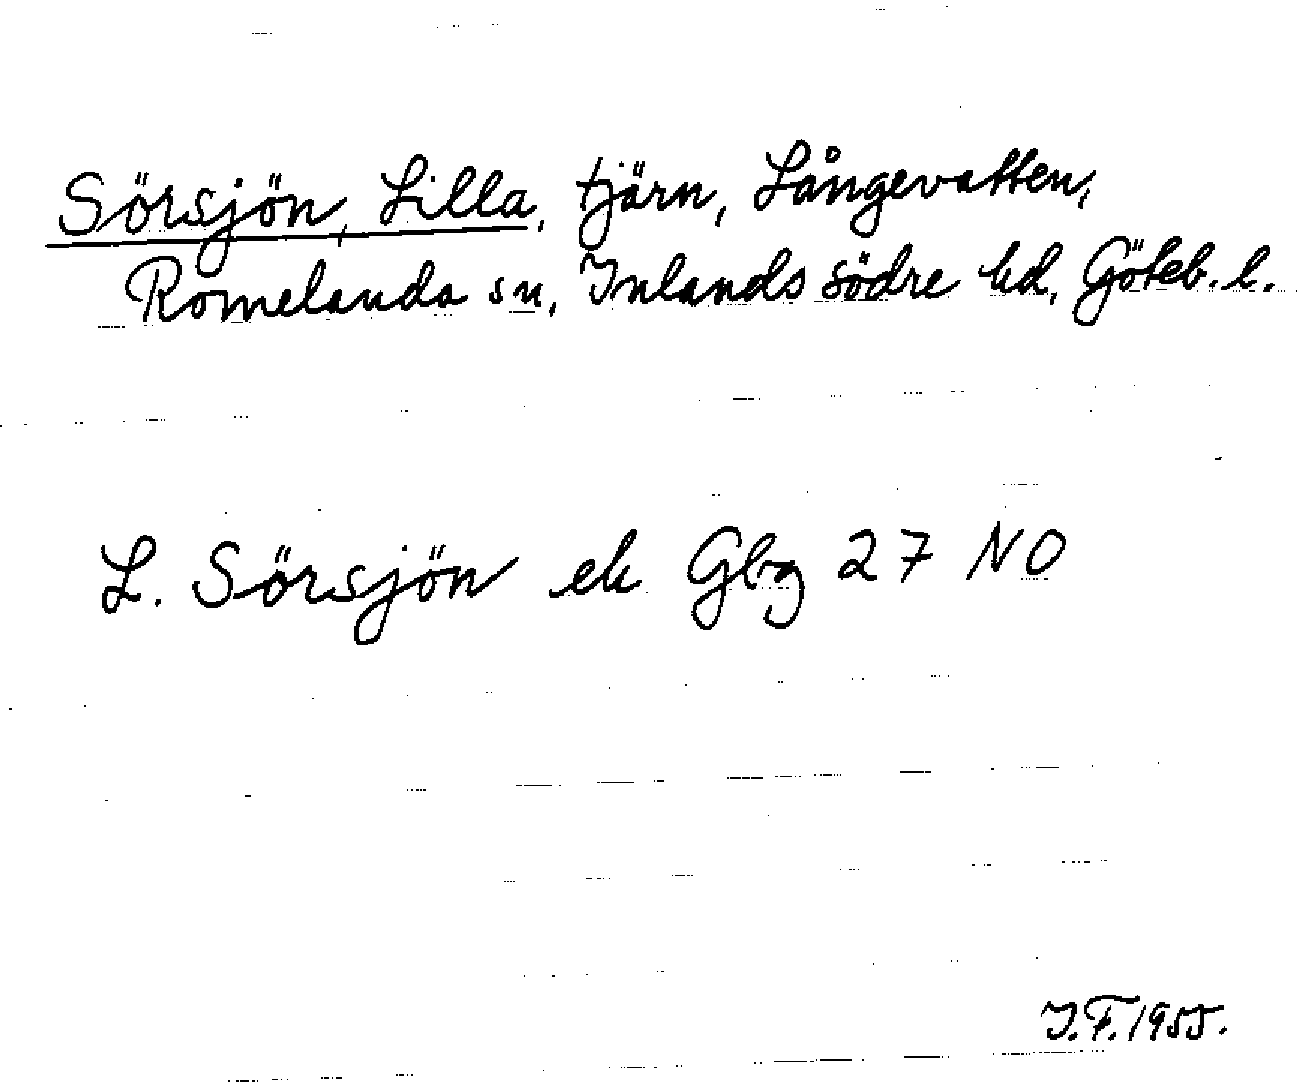 Sörsjön, Lilla, tjärn, Långevatten,
Romelanda sn, Inlands södre hd, Göteb. l.
L. Sörsjön ek Gbg 27 NO
I.F. 1955.